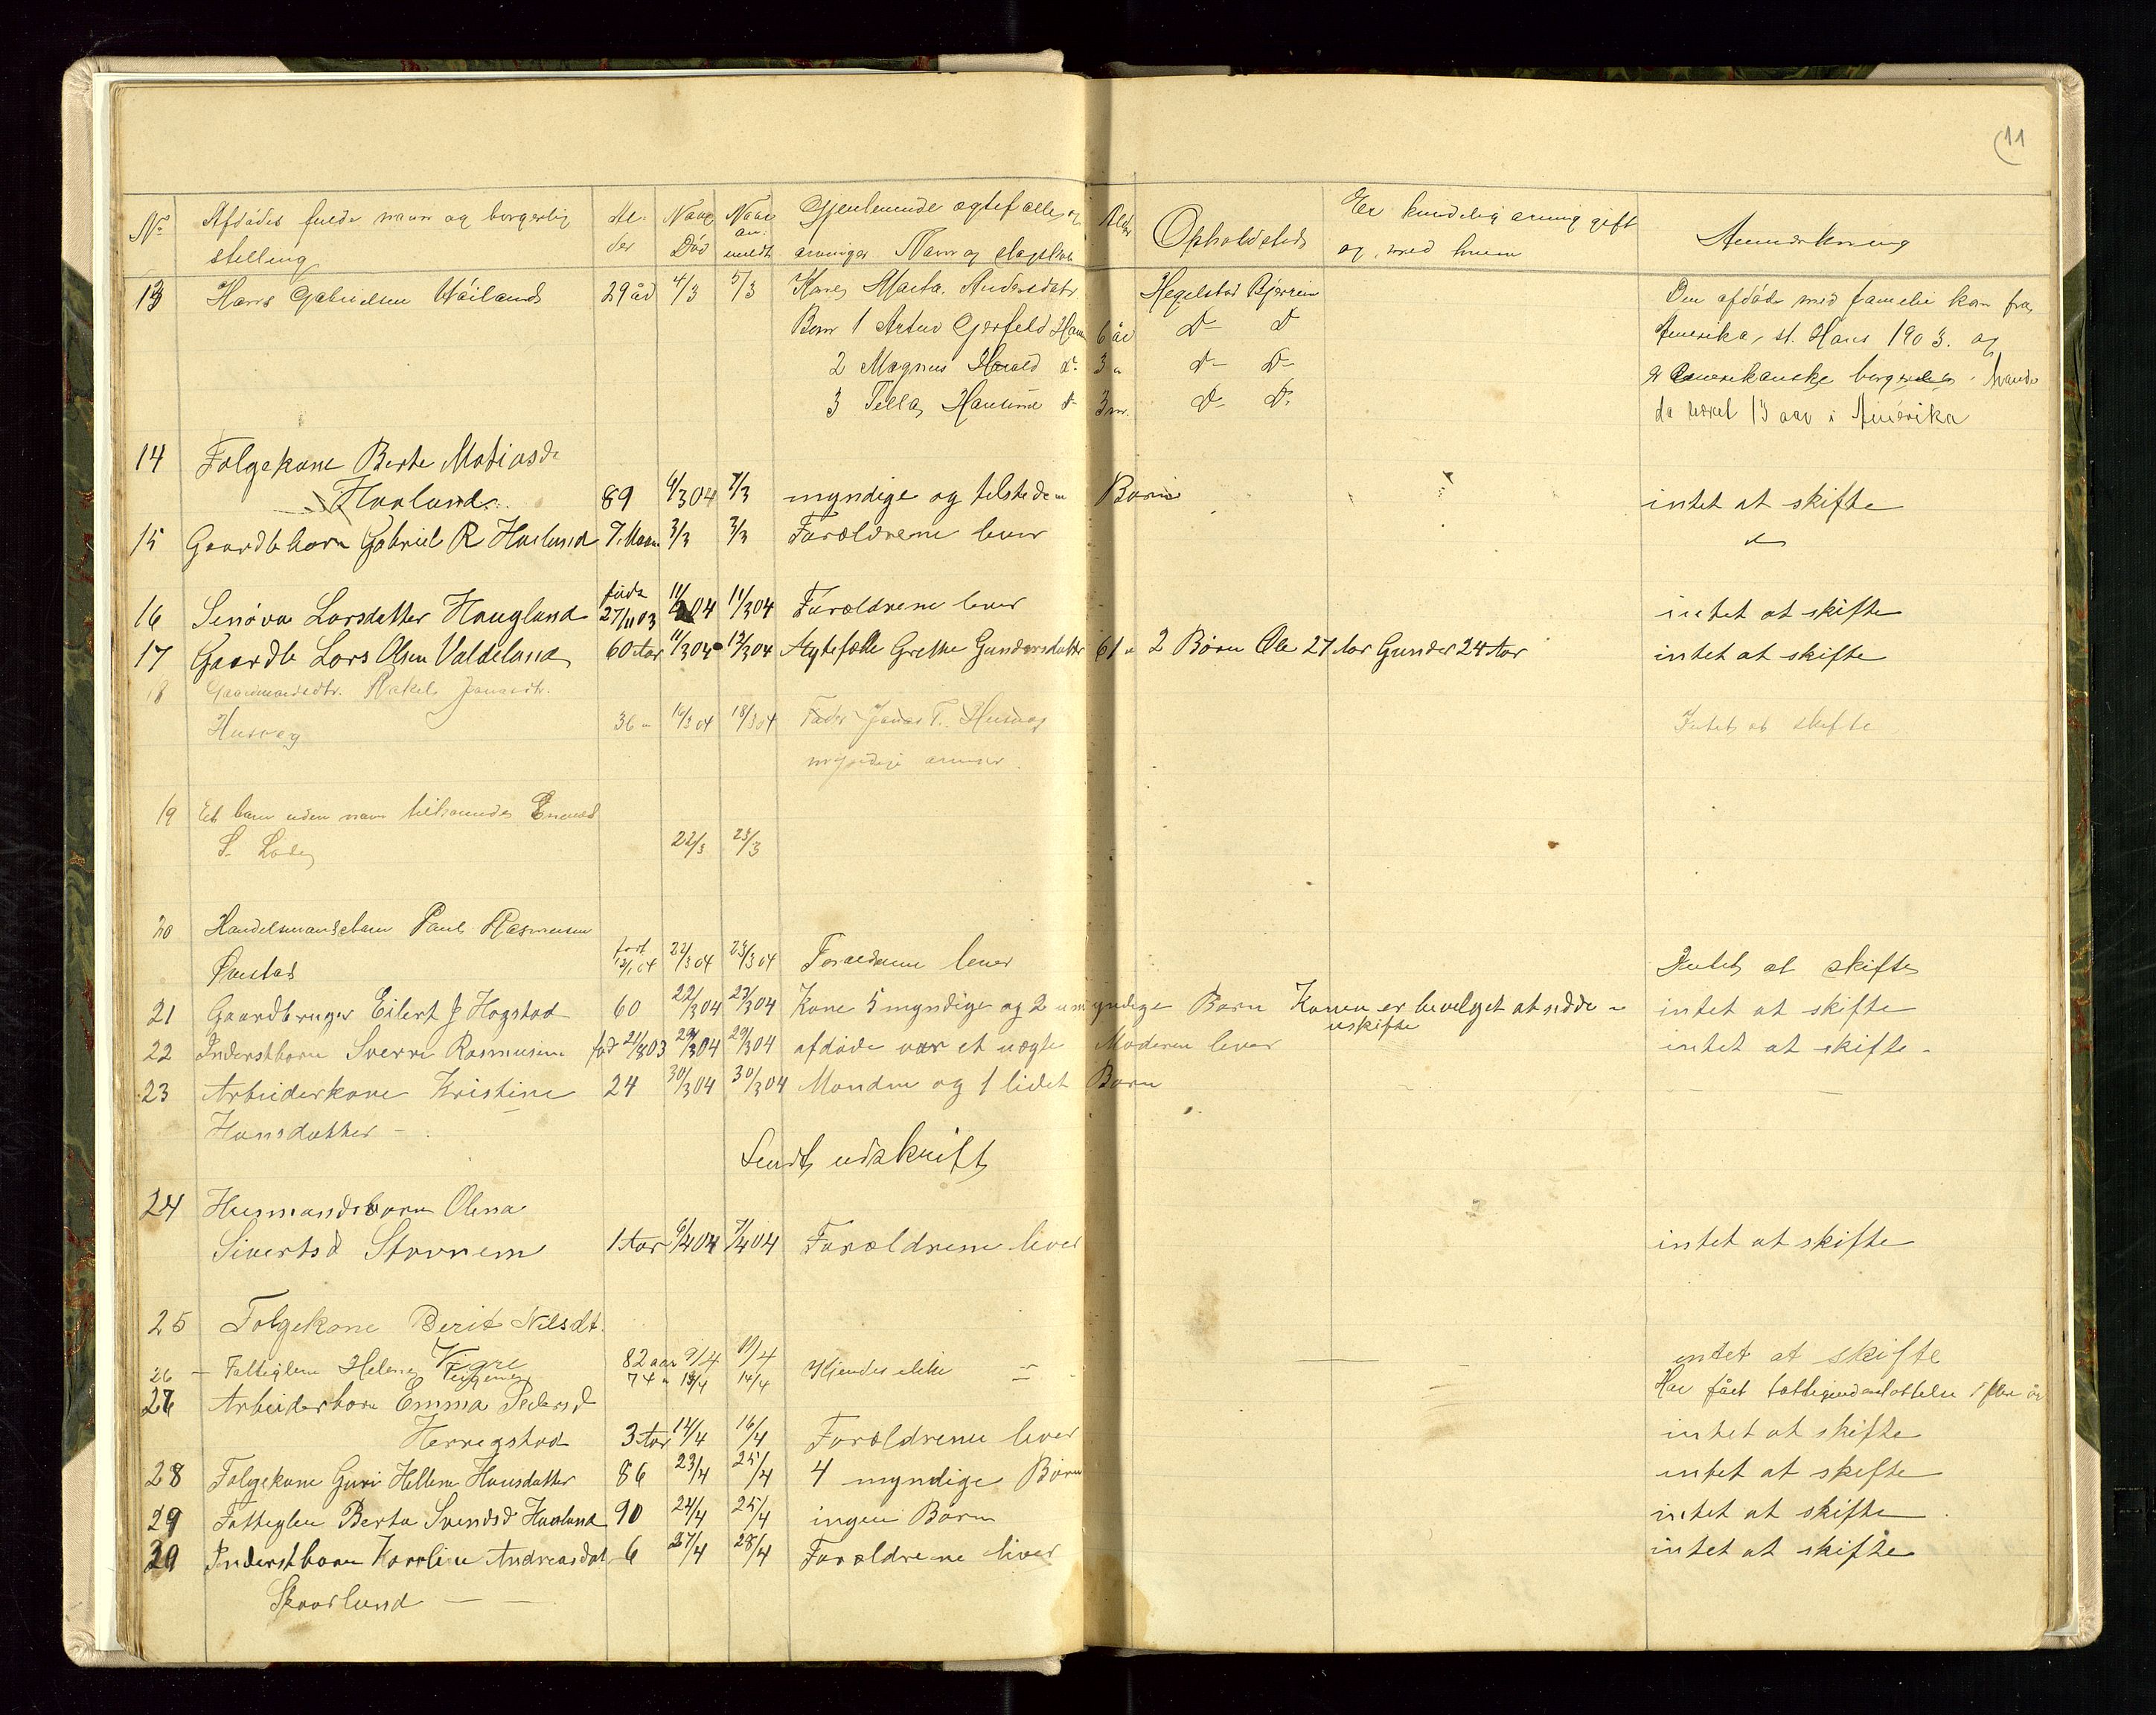 11
No Afdødes fulde navn og borgerlig stelling Al- der Naar Død Naar an- meldt Gjenlevende ægtefælle og arvinger Navn og slagtskab Alder Opholdsteds Er kvindelig arving gift og med hvem Anmerkning
13 Hans Gabrielsen 29 år 4/3 5/3 Kone Marta Andersdatr Hegelstad Bjerrein Den afdøde med familie kom fra
Born 1 Artur Gerfeld Han 6 år Do Do Amerika st. Hans 1903. og
2 Magnus Harald do 3 " Do Do er Amerikanske borgere havde
3 Tella Hansine do 3 m. Do Do da været 13 aar i Amerika
14 Folgekone Berte Matiasd
Haaland 89 6/3 04 7/3 myndige og tilstede Born intet at skifte
15 Gaardbborn Gabriel R Haaland 7 Maan 3/3 3/3 Forældrene lever do
16 Senøva Larsdatter Haugland føda 27/11 03 11/3 04 11/3 04 Forældrene lever intet at skifte
17 Gaardb Lars Olsen Valdeland 60 Aar 11/3 04 12/3 04 Ægtefælle Grethe Gundersdatter 61 " 2 Børn Ole 27 Aar Gunder 24 Aar intet at skifte
18 Gaardmandsdtr. Rakel Jonasdtr.
Husveg 36 " 16/3 04 18/3 04 Fader Jonas T. Husveg Intet at skifte
myndige
19 Et barn uden navn tilhørende Enevald
S. 22/3 23/3
20 Handelsmandsbarn Paul Rasmusen
Ørstad født 12/1 04 22/3 04 23/3 04 Forældrene lever Intet at skifte
21 Gaardbruger Eilert J Hogstad 60 22/3 04 23/3 04 Kone 5 myndige og 2 umyndige Born Konen er bevelget at sidde i uskifte intet at skifte
22 Inderstborn Sverre Rasmusen fød 21/8 03 29/3 04 29/3 04 afdøde var et uægte Moderen lever intet at skifte -
23 Arbeiderkone Kristine 24 30/3 04 30/3 04 Manden og 1 lidet Barn
Hansdatter -
Sendt udskrift
24 Husmandsborn Olena
Sivertsd Stornem 1 Aar 6/4 04 7/4 04 Forældrene lever intet at skifte
25 Folgekone Berit Nilsdt.
Vigre 82 aar 9/4 10/4 intet at skifte
26 - Fattiglem Helene 74 " 13/4 14/4 Kjendes ikke Har fået
27 Arbeiderborn Emma Pedersd
Herregstad 3 Aar 14/4 16/4 Forældrene lever intet at skifte
28 Folgekone Guri Hellene Hansdatter 86 23/4 25/4 4 myndige Børn intet at skifte
29 Fatteglem Berta Svendsd Haaland 90 24/4 25/4 ingen Børn intet at skifte
30 Inderstborn Karoline Andreasdat 6 27/4 28/4 Forældrene lever intet at skifte
Skaarland - -